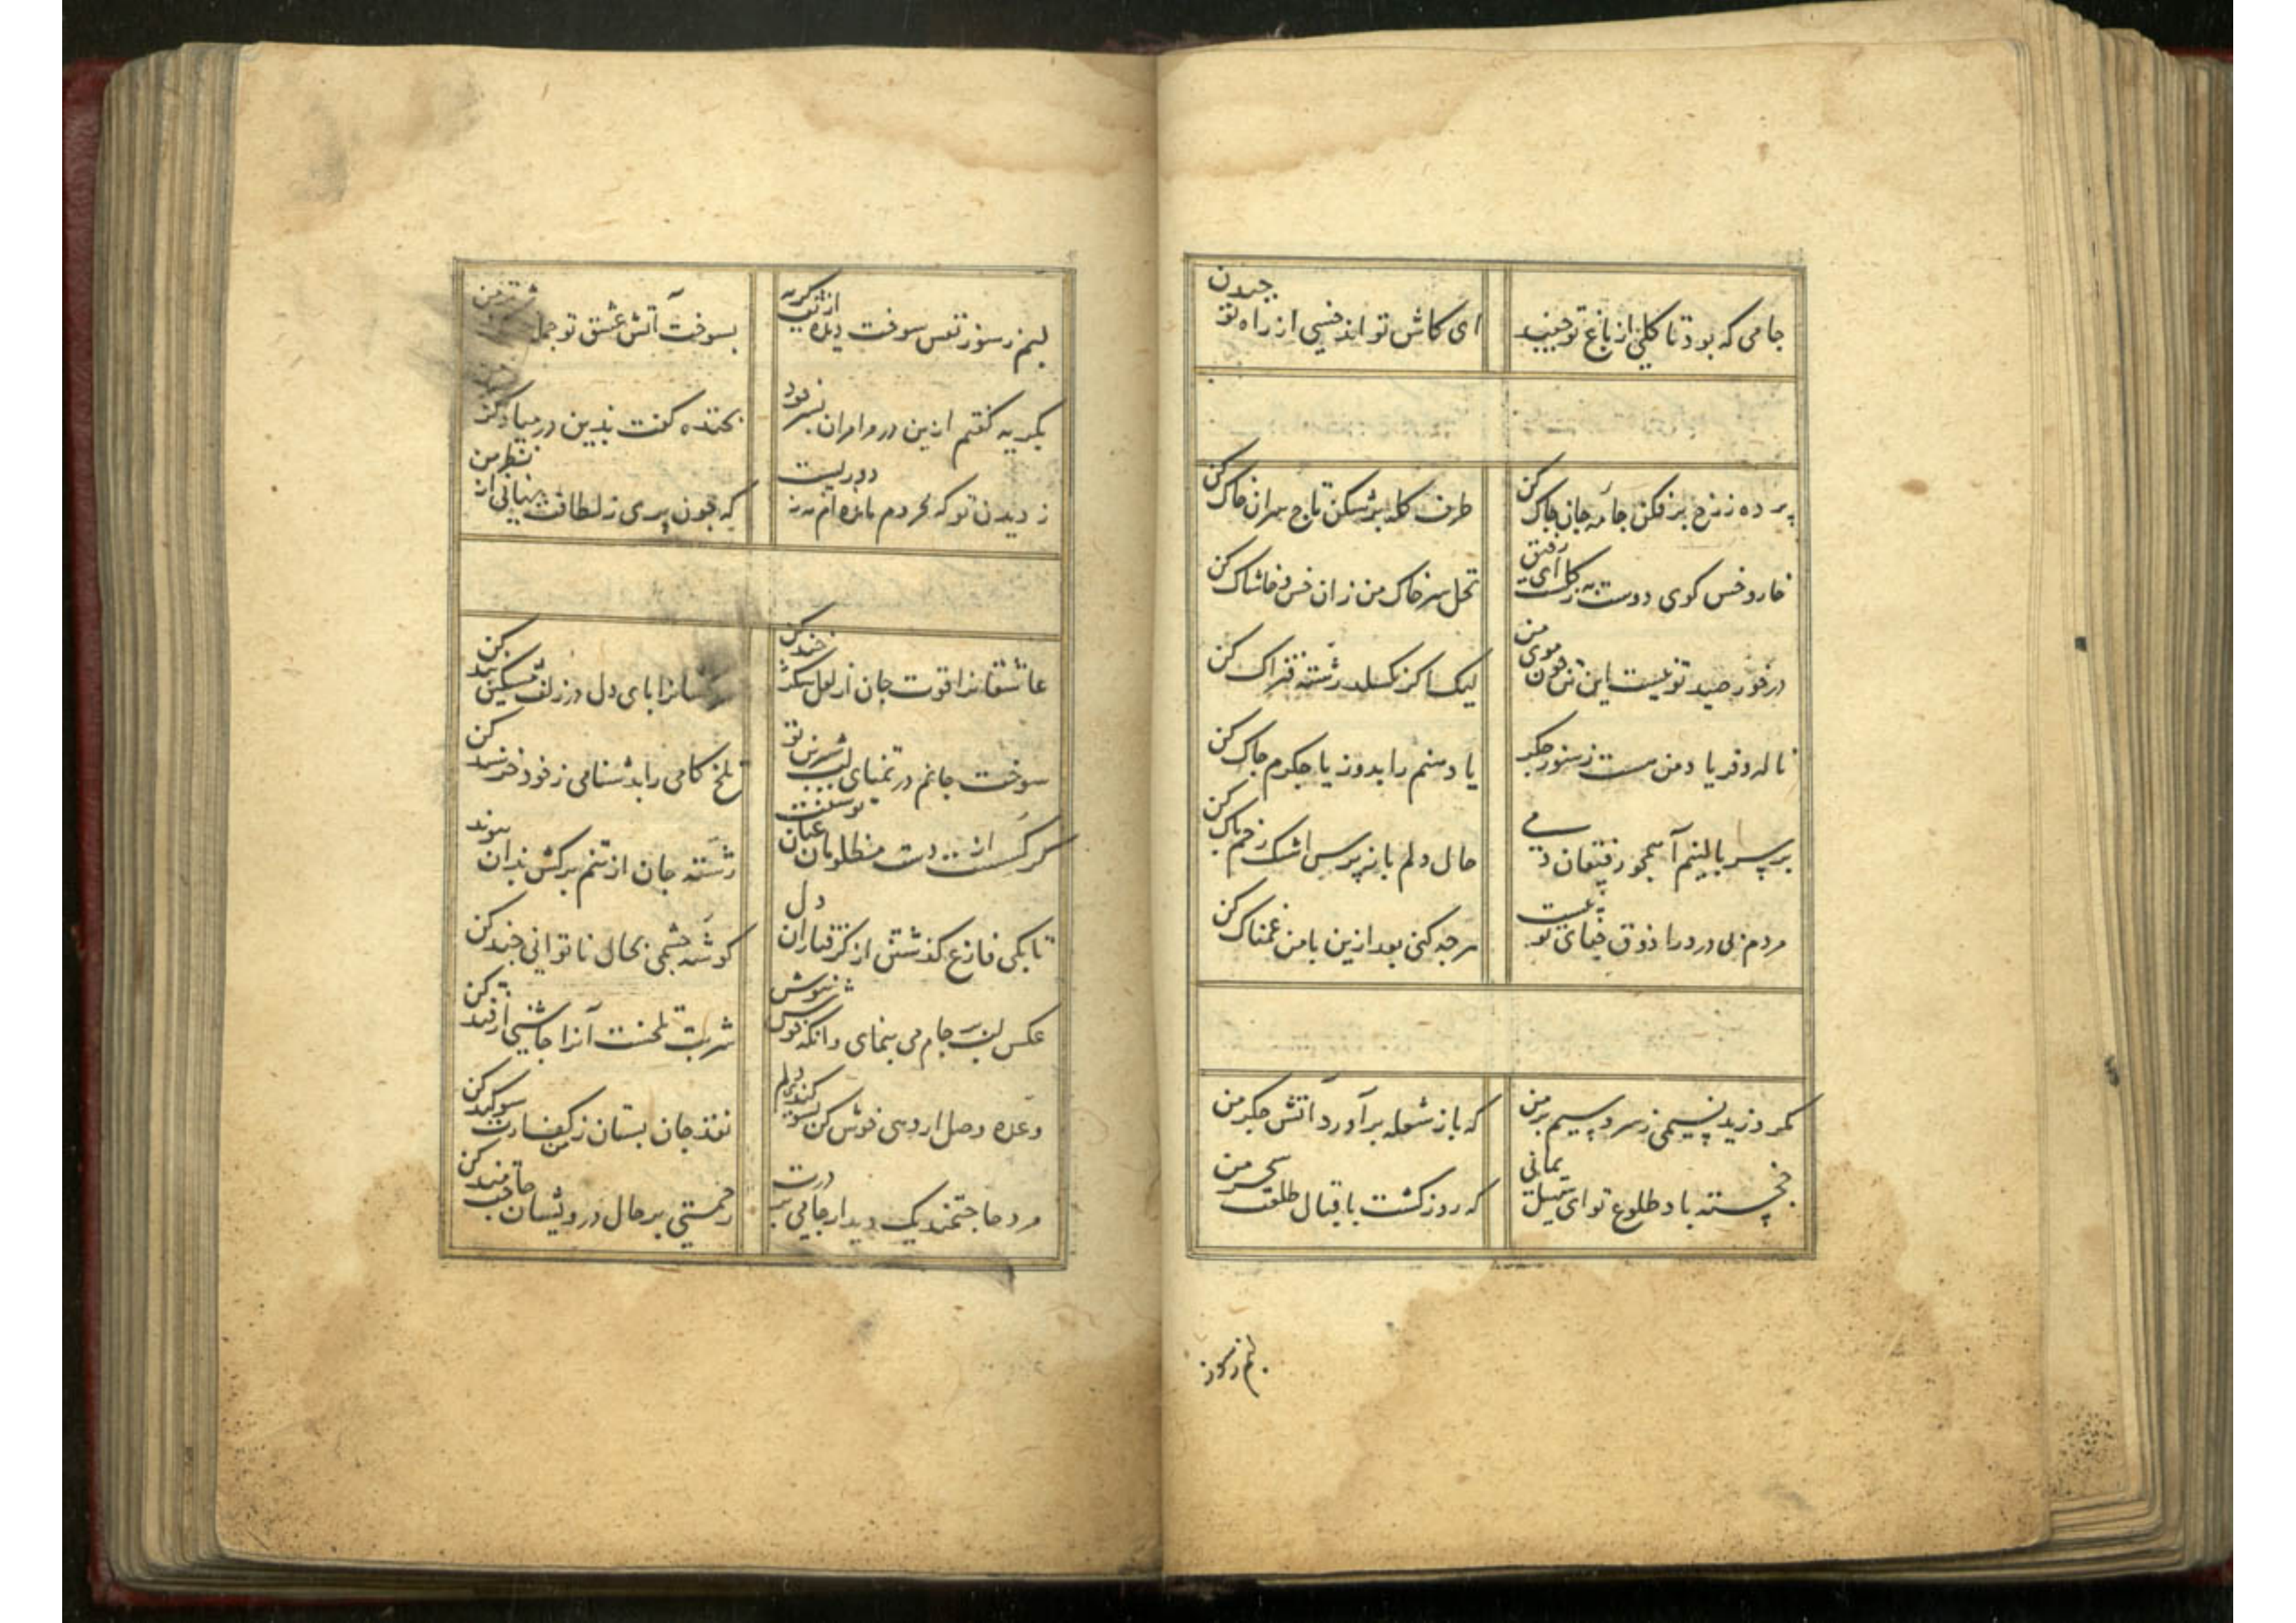 جامی که بود تا گلی از باغ تو چیند
ای کاش تواند خسی از راه تو چیدن
پرده ز رخ برفکن جامهٔ جان چاک کن
طرف کله برشکن تاج سران خاک کن
خار و خس کوی دوست به ز گلست ای رفیق
نخل سر خاک من زان خس و خاشاک کن
درخور صید تو نیست این تن چون موی من
لیک اگر بگسلد رشته فتراک کن
ناله و فریاد من هست ز سوز جگر
یا دهنم را بدوز یا جگرم چاک کن
بر سر بالینم آ همچو رفیقان دمی
حال دلم باز پرس اشک رخم پاک کن
مردم بی درد را ذوق جفای تو نیست
هرچه کنی بعد ازین با من غمناک کن
مگر وزید نسیمی ز سرو سیمبر من
که باز شعله برآورد آتش جگر من
خجسته باد طلوع تو ای سهیل یمانی
که روز گشت باقبال طلعتت سحر من
لبم ز سوز
لبم ز سوز نفس سوخت دیده از تف گریه
بسوخت آتش عشق تو جمله
بگریه گفتم ازین در مرا مران بسر خود
بخنده گفت بدین در میا دگر
ز دیدن تو که محروم مانده‌ام نه ز دوریست
که چون پری ز لطافت نهانی از نظر من
عاشقانرا قوت جان از لعل شکر خند کن
پای دل در زلف مشکین بند کن
سوخت جانم در تمنای لب شیرین تو
تلخ کامی را بدشنامی ز خود خرسند کن
گر گسست از دست مظلومان عنان توسنت
رشته جان از تنم برکش بدان پیوند
تا بکی فارغ گذشتن از گرفتاران دل
گوشهٔ چشمی بحال ناتوانی چند کن
عکس لب بر جام می بنمای وانگه خوش بنوش
شربت تلخست آنرا چاشنی از قند کن
وعده وصل ار دهی خوش کن
نقد جان بستان ز من سوگند کن
مرد حاجتمند یک دیدار جامی بر درت
رحمتی بر حال درویشان حاجتمند کن